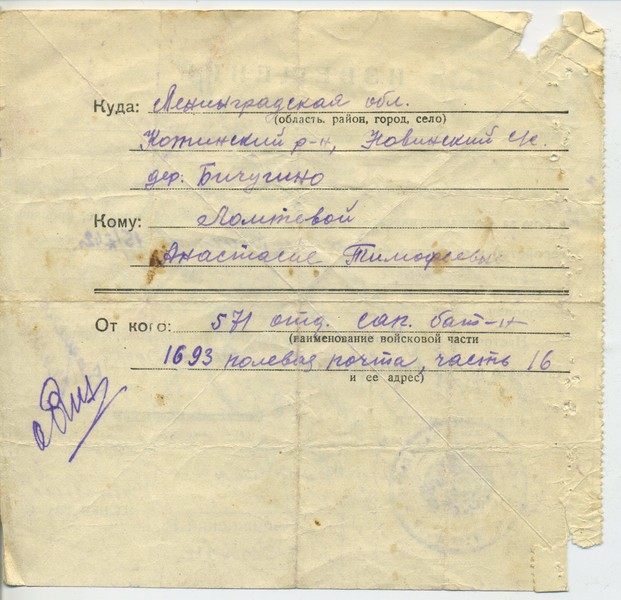 Куда: Ленинградская обл.
(область, район, город, село)
Кожинский р-н, Новинский с/с.
дер. Бичугино
Кому: Ломтевой
Анастасие Тимофеевне
От кого: 571 отд. сап. бат-н
(наименование войсковой части
1693 полевая почта, часть 16
и ее адрес)